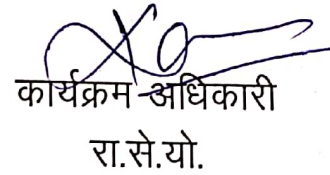 कार्यक्रम अधिकारी
रा.से.यो.